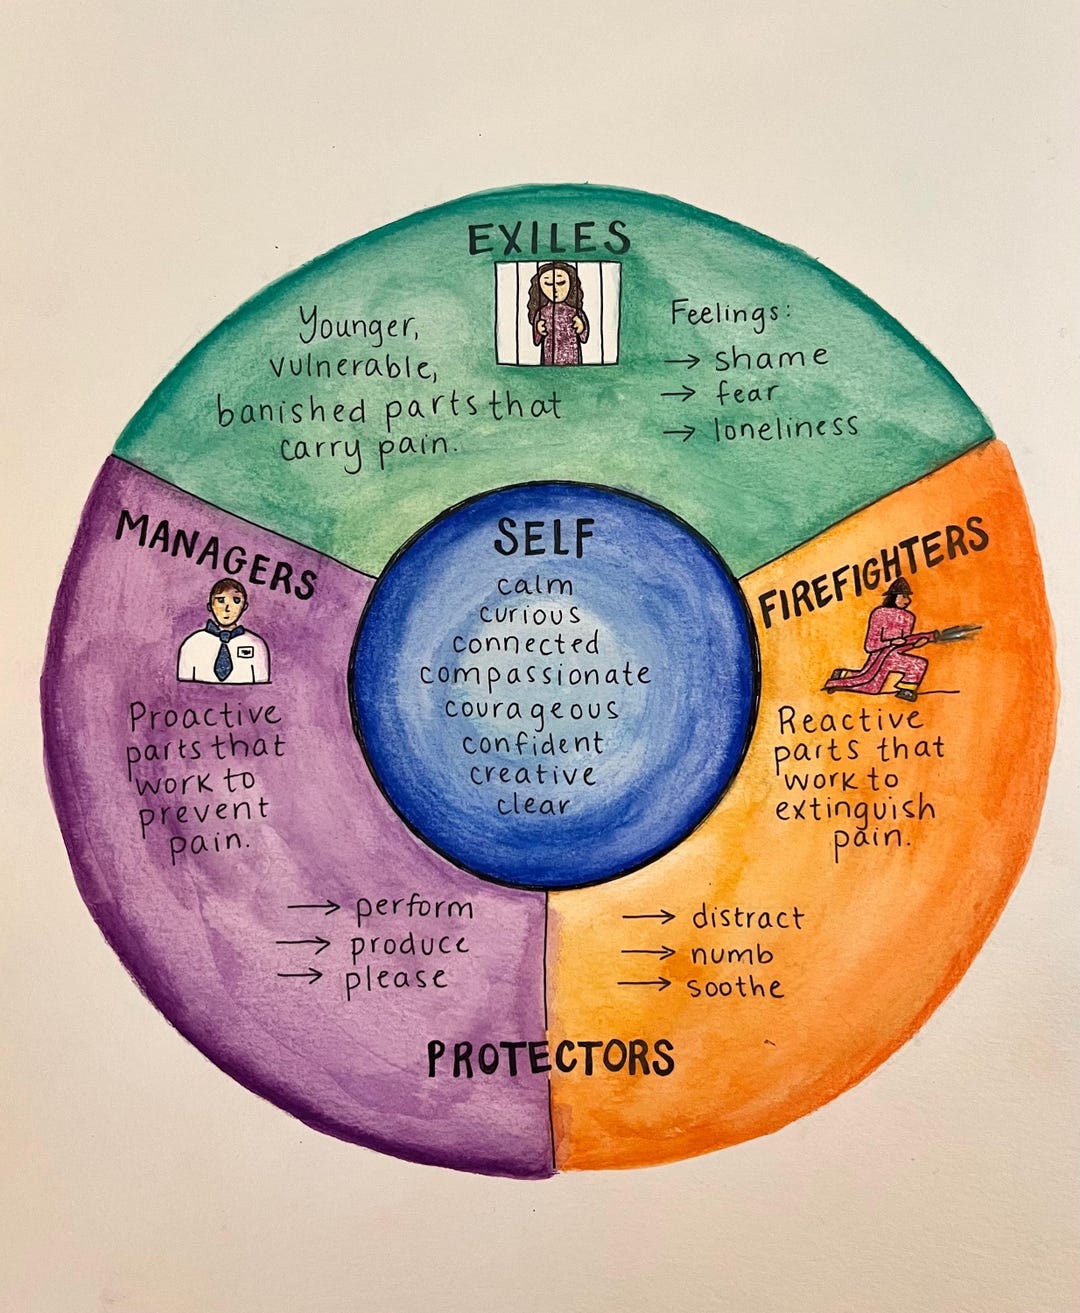 EXILES
Younger,
vulnerable,
banished parts that
carry pain.
Feelings:
→ shame
→ fear
→ loneliness
MANAGERS
Proactive
parts that
work to
prevent
pain.
→ perform
→ produce
→ please
SELF
calm
curious
connected
compassionate
courageous
confident
creative
clear
FIREFIGHTERS
Reactive
parts that
work to
extinguish
pain.
→ distract
→ numb
→ soothe
PROTECTORS